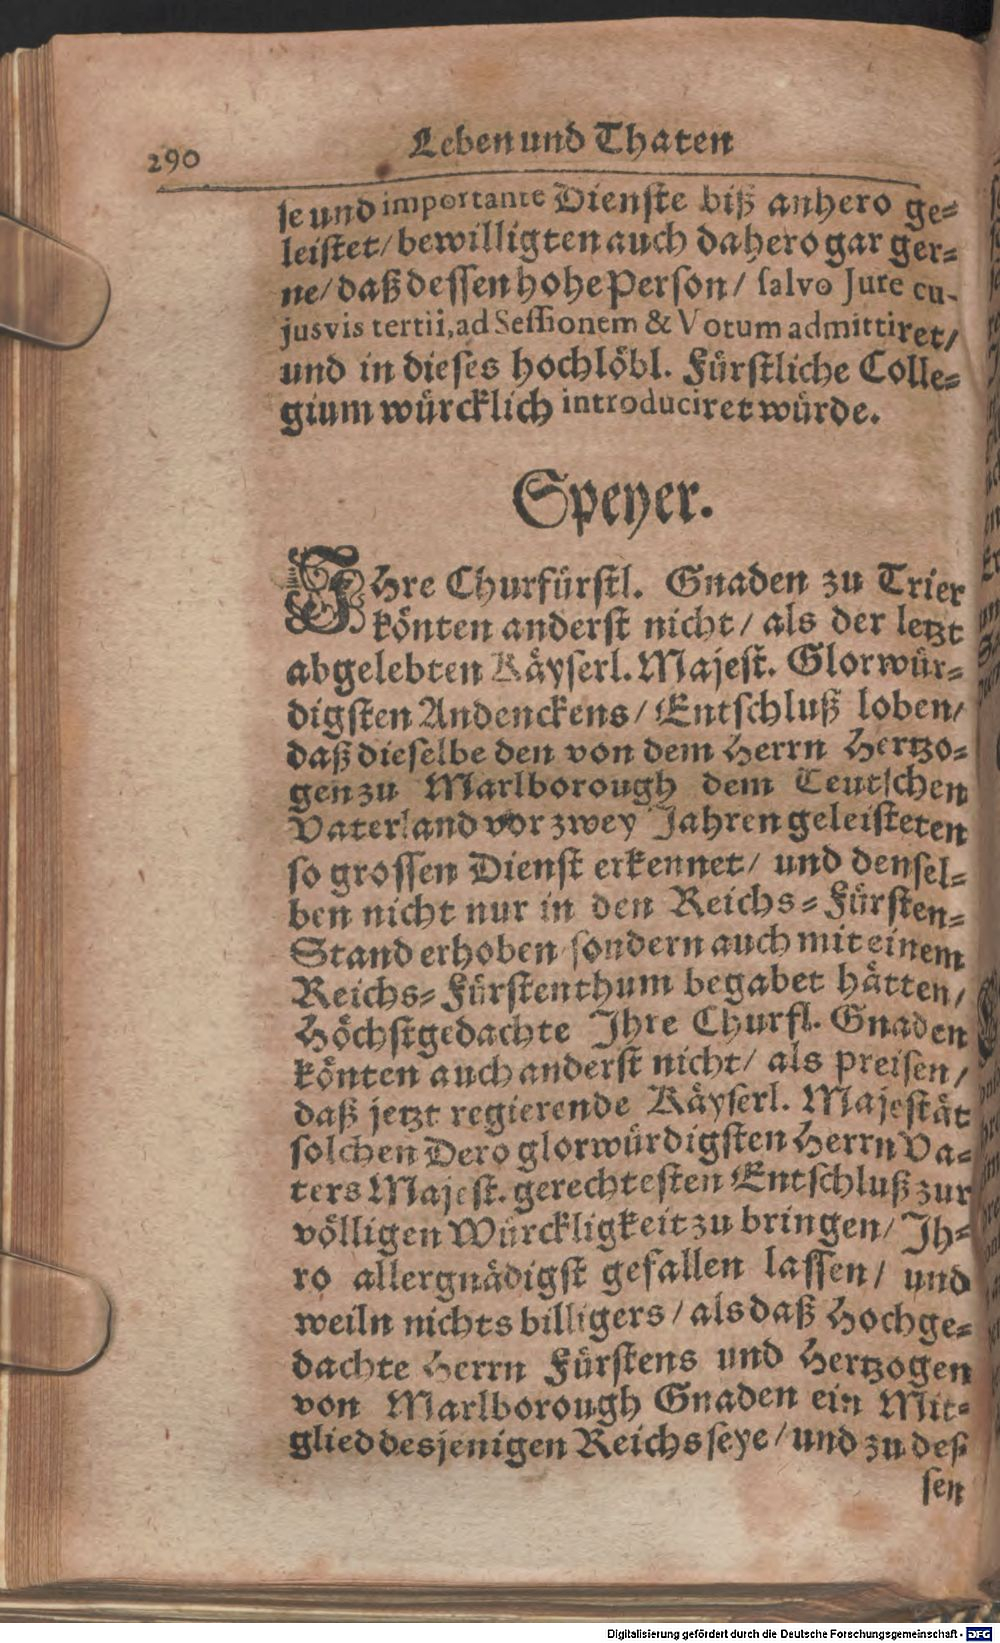 290
Leben und Thaten
se und importante Dienste biß anhero ge=
leistet/ bewilligten auch dahero gar ger=
ne/ daß dessen hohe Person/ salvo Jure cu-
jusvis tertii, ad Sessionem & Votum admittiret/
und in dieses hochlöbl. Fürstliche Colle=
gium würcklich introduciret würde.
Speyer.
IHre Churfürstl. Gnaden zu Trier
könten anderst nicht/ als der letzt
abgelebten Käyserl. Majest. Glorwür=
digsten Andenckens/ Entschluß loben/
daß dieselbe den von dem Herrn Hertzo=
gen zu Marlborough dem Teutschen
Vaterland vor zwey Jahren geleisteten
so grossen Dienst erkennet/ und densel=
ben nicht nur in den Reichs=Fürsten=
Stand erhoben/ sondern auch mit einem
Reichs=Fürstenthum begabet hätten/
Höchstgedachte Ihre Churfl. Gnaden
könten auch anderst nicht/ als preisen/
daß jetzt regierende Käyserl. Majestät
solchen Dero glorwürdigsten Herrn Va=
ters Majest. gerechtesten Entschluß zur
völligen Würckligkeit zu bringen/ Ih=
ro allergnädigst gefallen lassen/ und
weiln nichts billigers/ als daß Hochge=
dachte Herrn Fürstens und Hertzogen
von Marlborough Gnaden ein Mit=
glied desjenigen Reichs seye/ und zu des
sen
Digitalisierung gefördert durch die Deutsche Forschungsgemeinschaft - DFG